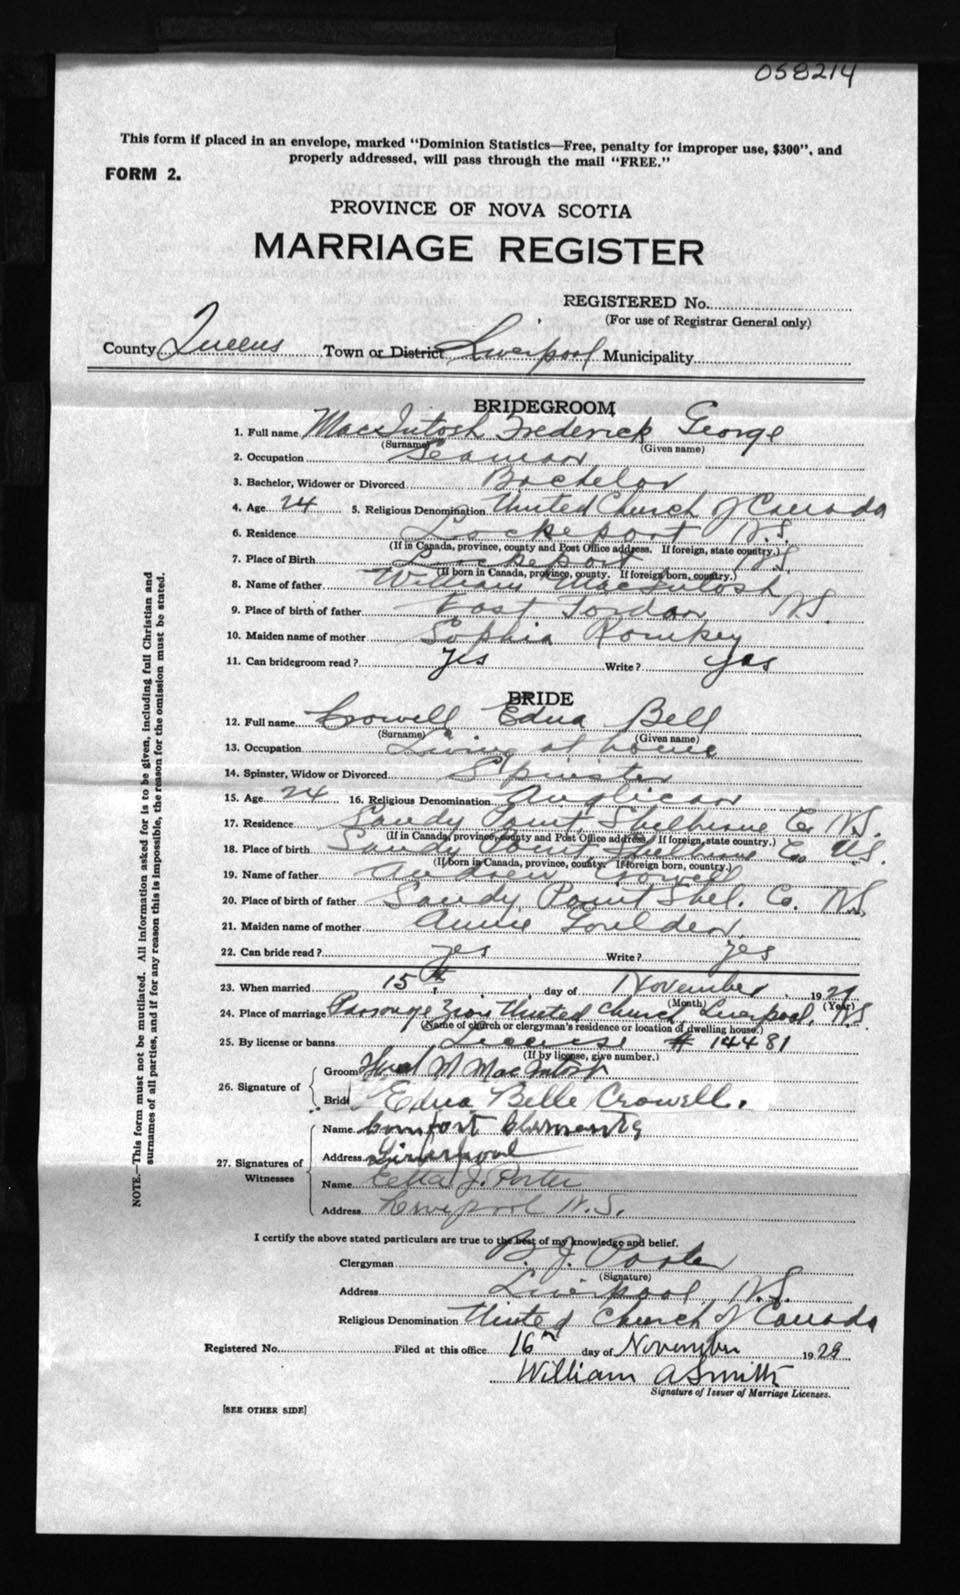 058214
This form if placed in an envelope, marked "Dominion Statistics—Free, penalty for improper use, $300", and
properly addressed, will pass through the mail "FREE."
FORM 2.
PROVINCE OF NOVA SCOTIA
MARRIAGE REGISTER
REGISTERED No.
(For use of Registrar General only)
County Queens Town or District Liverpool Municipality
BRIDEGROOM
1. Full name MacIntosh Frederick George
(Surname) (Given name)
2. Occupation Seaman
3. Bachelor, Widower or Divorced Bachelor
4. Age 24 5. Religious Denomination United Church of Canada
6. Residence Lockeport N.S.
(If in Canada, province, county and Post Office address. If foreign, state country.)
7. Place of Birth Lockeport N.S.
(If born in Canada, province, county. If foreign born, country.)
8. Name of father William MacIntosh
9. Place of birth of father East Jordan N.S.
10. Maiden name of mother Sophia Romkey
11. Can bridegroom read? yes Write? yes
BRIDE
12. Full name Crowell Edna Bell
(Surname) (Given name)
13. Occupation Living at home
14. Spinster, Widow or Divorced Spinster
15. Age 24 16. Religious Denomination Anglican
17. Residence Sandy Point, Shelburne Co N.S.
(If in Canada, province, county and Post Office address. If foreign, state country.)
18. Place of birth Sandy Point, Shelburne Co N.S.
(If born in Canada, province, county. If foreign born, country.)
19. Name of father Andrew Crowell
20. Place of birth of father Sandy Point Shel. Co. N.S.
21. Maiden name of mother Annie Goulden
22. Can bride read? yes Write? yes
23. When married 15th day of November 1929
(Month) (Year)
24. Place of marriage Parsonage Zion United Church, Liverpool, N.S.
(Name of church or clergyman's residence or location of dwelling house.)
25. By license or banns License # 14481
(If by license, give number.)
26. Signature of
Groom MacIntosh
Bride Edna Belle Crowell.
27. Signatures of Witnesses
Name Comfort Clements
Address Liverpool
Name Etta J. Porter
Address Liverpool N.S.
I certify the above stated particulars are true to the best of my knowledge and belief.
Clergyman B. J. Porter
(Signature)
Address Liverpool N.S.
Religious Denomination United Church of Canada
Registered No. Filed at this office 16th day of November 1929
William A Smith
Signature of Issuer of Marriage Licenses.
[SEE OTHER SIDE]
NOTE.—This form must not be mutilated. All information asked for is to be given, including full Christian and
surnames of all parties, and if for any reason this is impossible, the reason for the omission must be stated.